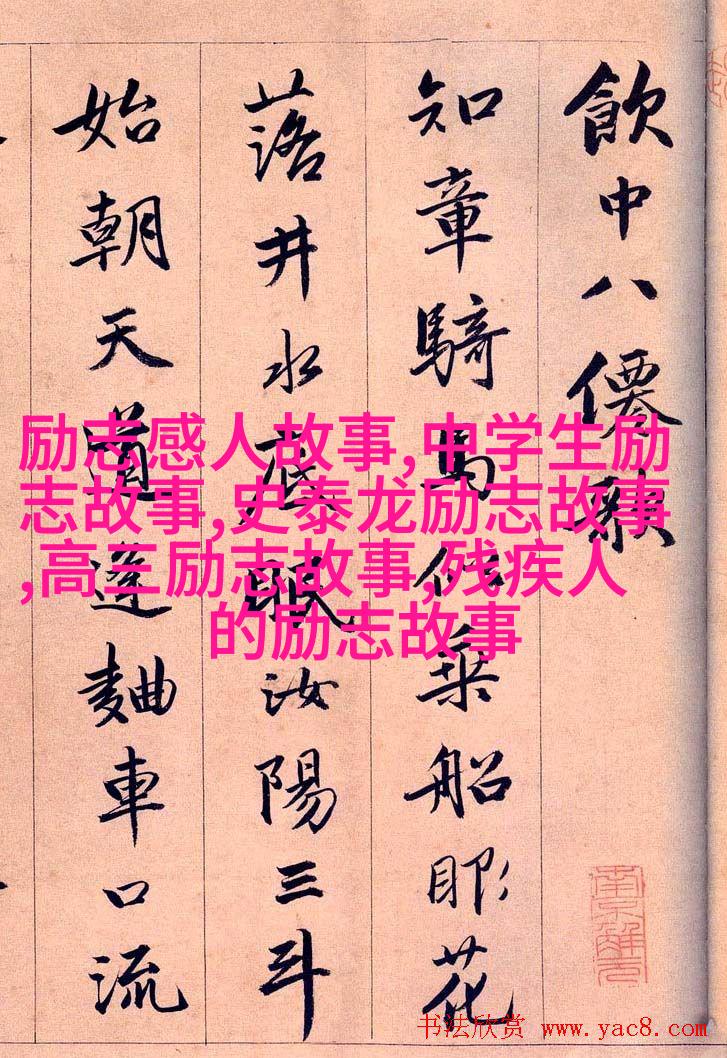 飲中八僊歌
知章騎馬似乘船眼花
落井水底眠汝陽三斗
始朝天道逢麯車口流
励志感人故事,中学生励
志故事,史泰龙励志故事
,高三励志故事,残疾人
的励志故事
南京解元
书法欣赏 www.yac8.com